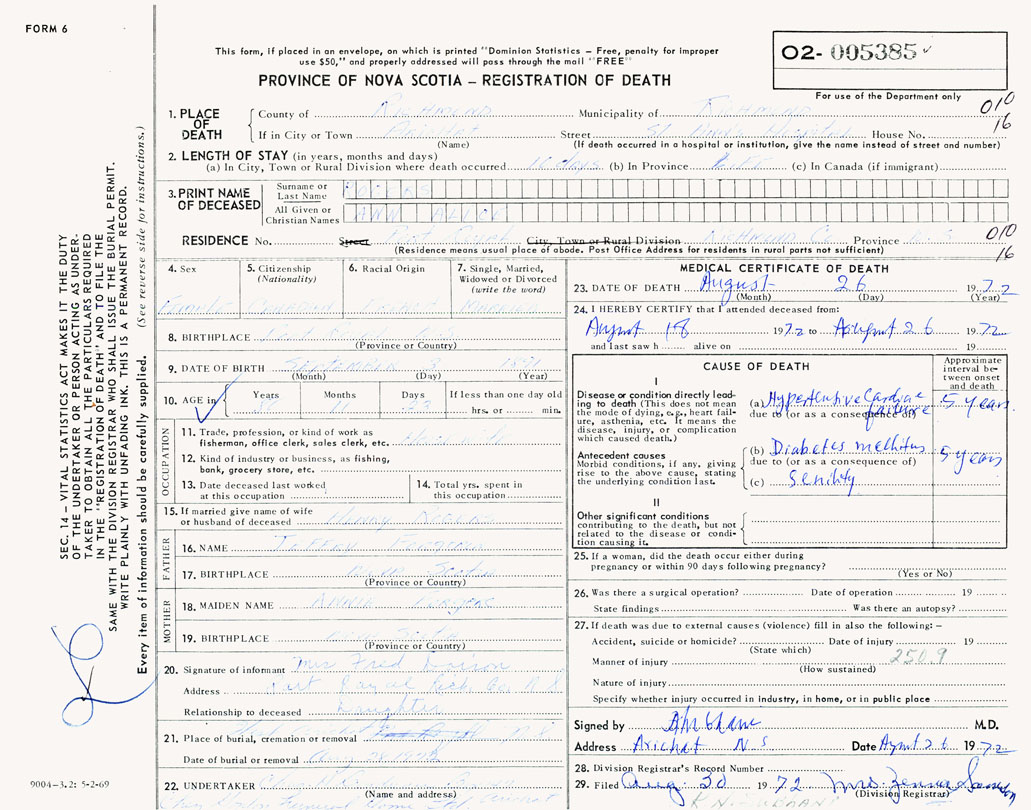 FORM 6
This form, if placed in an envelope, on which is printed "Dominion Statistics – Free, penalty for improper
use $50," and properly addressed will pass through the mail "FREE"
PROVINCE OF NOVA SCOTIA – REGISTRATION OF DEATH
O2- 005385
For use of the Department only
010
16
1. PLACE OF DEATH
County of Richmond Municipality of Richmond
If in City or Town Arichat Street St Ann's Hospital House No.
(Name) (If death occurred in a hospital or institution, give the name instead of street and number)
2. LENGTH OF STAY (in years, months and days)
(a) In City, Town or Rural Division where death occurred 10 days (b) In Province Life (c) In Canada (if immigrant)
3. PRINT NAME OF DECEASED
Surname or Last Name
All Given or Christian Names ANN ALICE
RESIDENCE No. Street Port Royal City, Town or Rural Division Richmond Co Province N.S
(Residence means usual place of abode. Post Office Address for residents in rural parts not sufficient)
010
16
4. Sex Female
5. Citizenship (Nationality) Canadian
6. Racial Origin
7. Single, Married, Widowed or Divorced (write the word)
8. BIRTHPLACE
(Province or Country)
9. DATE OF BIRTH September 3
(Month) (Day) (Year)
10. AGE in
Years Months Days If less than one day old
11 23 hrs. or min.
OCCUPATION
11. Trade, profession, or kind of work as
fisherman, office clerk, sales clerk, etc.
12. Kind of industry or business, as fishing,
bank, grocery store, etc.
13. Date deceased last worked
at this occupation
14. Total yrs. spent in
this occupation
15. If married give name of wife
or husband of deceased Henry
FATHER
16. NAME
17. BIRTHPLACE Nova Scotia
(Province or Country)
MOTHER
18. MAIDEN NAME Annie
19. BIRTHPLACE Nova Scotia
(Province or Country)
20. Signature of informant Mrs Fred
Address Port Royal Rich. Co. N.S
Relationship to deceased Daughter
21. Place of burial, cremation or removal N.S
Date of burial or removal Aug
22. UNDERTAKER
(Name and address)
Funeral Home Ltd. Arichat
MEDICAL CERTIFICATE OF DEATH
23. DATE OF DEATH August 26 1972
(Month) (Day) (Year)
24. I HEREBY CERTIFY that I attended deceased from:
August 18 1972 to August 26 1972
and last saw h alive on 19
CAUSE OF DEATH
Approximate interval between onset and death
I
Disease or condition directly leading to death (This does not
mean the mode of dying, e.g., heart failure, asthenia, etc. It means the
disease, injury, or complication
which caused death.)
(a) Hypertensive Cardiac failure 5 years
due to (or as a consequence of)
Antecedent causes
Morbid conditions, if any, giving
rise to the above cause, stating
the underlying condition last.
(b) Diabetes mellitus 5 years
due to (or as a consequence of)
(c) Senility
II
Other significant conditions
contributing to the death, but not
related to the disease or condition causing it.
25. If a woman, did the death occur either during
pregnancy or within 90 days following pregnancy?
(Yes or No)
26. Was there a surgical operation? Date of operation 19
State findings Was there an autopsy?
27. If death was due to external causes (violence) fill in also the following: –
Accident, suicide or homicide? Date of injury 19
(State which)
250.9
Manner of injury
(How sustained)
Nature of injury
Specify whether injury occurred in industry, in home, or in public place
Signed by M.D.
Address Arichat N S Date August 26 1972
28. Division Registrar's Record Number
29. Filed Aug 30 1972 Mrs.
(Division Registrar)
SEC. 14 – VITAL STATISTICS ACT MAKES IT THE DUTY
OF THE UNDERTAKER OR PERSON ACTING AS UNDER-
TAKER TO OBTAIN ALL THE PARTICULARS REQUIRED
IN THE "REGISTRATION OF DEATH" AND TO FILE THE
SAME WITH THE DIVISION REGISTRAR WHO SHALL ISSUE THE BURIAL PERMIT.
WRITE PLAINLY WITH UNFADING INK. THIS IS A PERMANENT RECORD.
Every item of information should be carefully supplied. (See reverse side for instructions.)
9004–3.2: 5-2-69